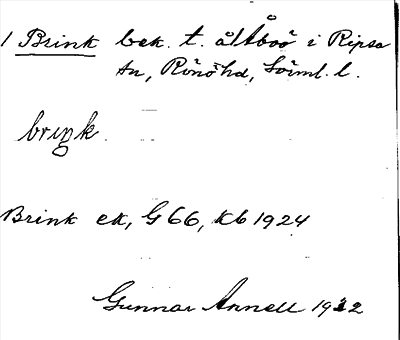 1 Brink bek. t. ålAboö i Ripsa
sn, Rönö hd, Sörml. l.
brıŋk.
Brink ek, G 66, Kb 1924
Gunnar Annell 1932